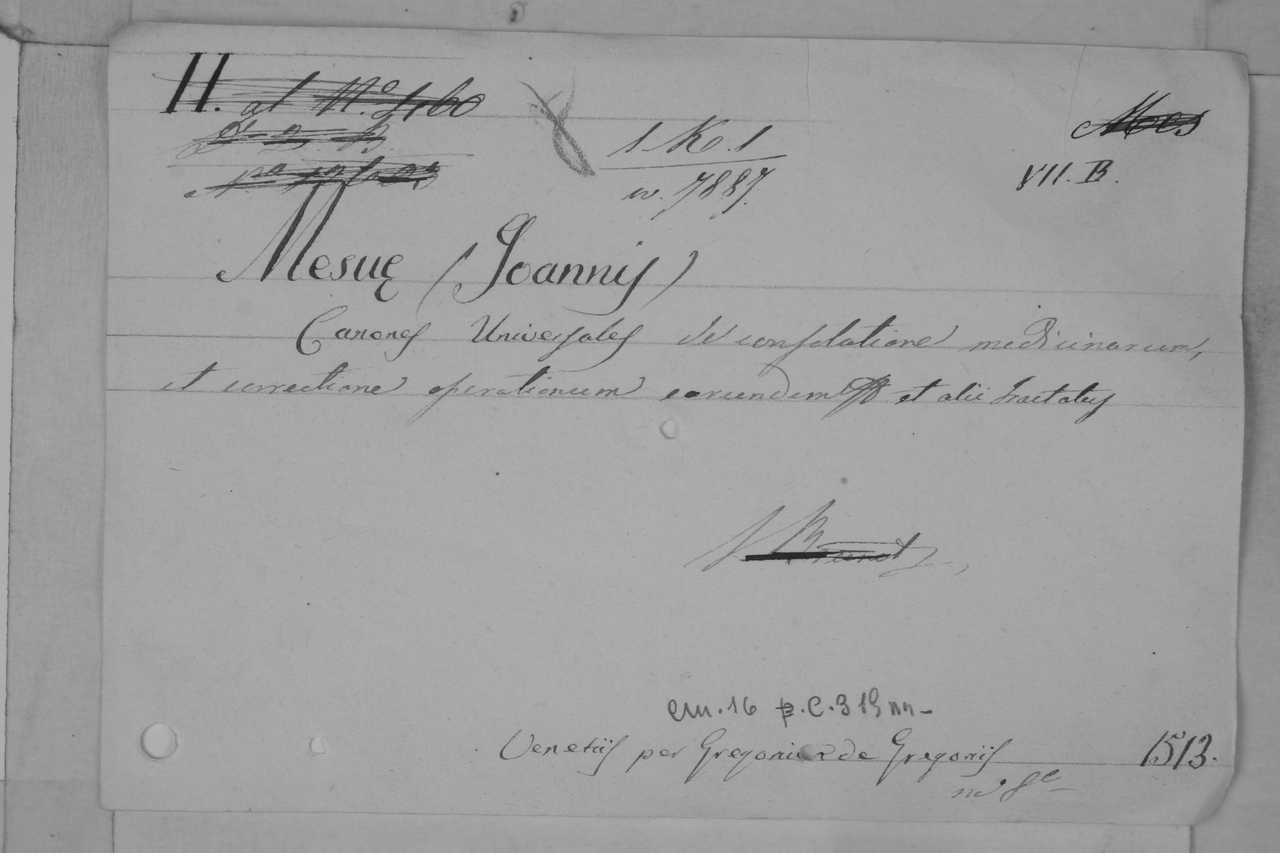 H. al N.º 4160
Mes
1. K. 1
VII. B.
n. 7887.
Mesuę (Joannis)
Canones Universales de consolatione medicinarum,
et correctione operationum earundem et alii tractatus
cm. 16 p. C. 319 nn -
Venetiis per Gregoriu de Gregoriis 1513.
in 8º